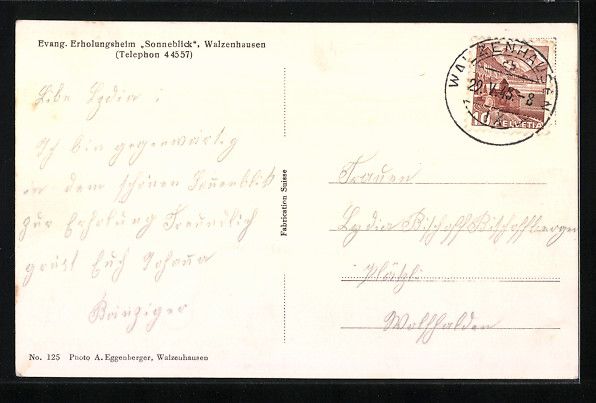 Evang. Erholungsheim „Sonneblick“, Walzenhausen
(Telephon 4 45 57)
Libe Lydia!
Ich bin gegenwärtig
in dem schönen Sonneblick
zur Erholung Freundlich
grüst Euch Johana
Bänziger
Fabrication Suisse
WALZENHAUSEN
20.V.45.-8
10 HELVETIA
Frauen
Lydia Bischoff Bischofberger
Plätzli
Wolfhalden
No. 125 Photo A. Eggenberger, Walzenhausen